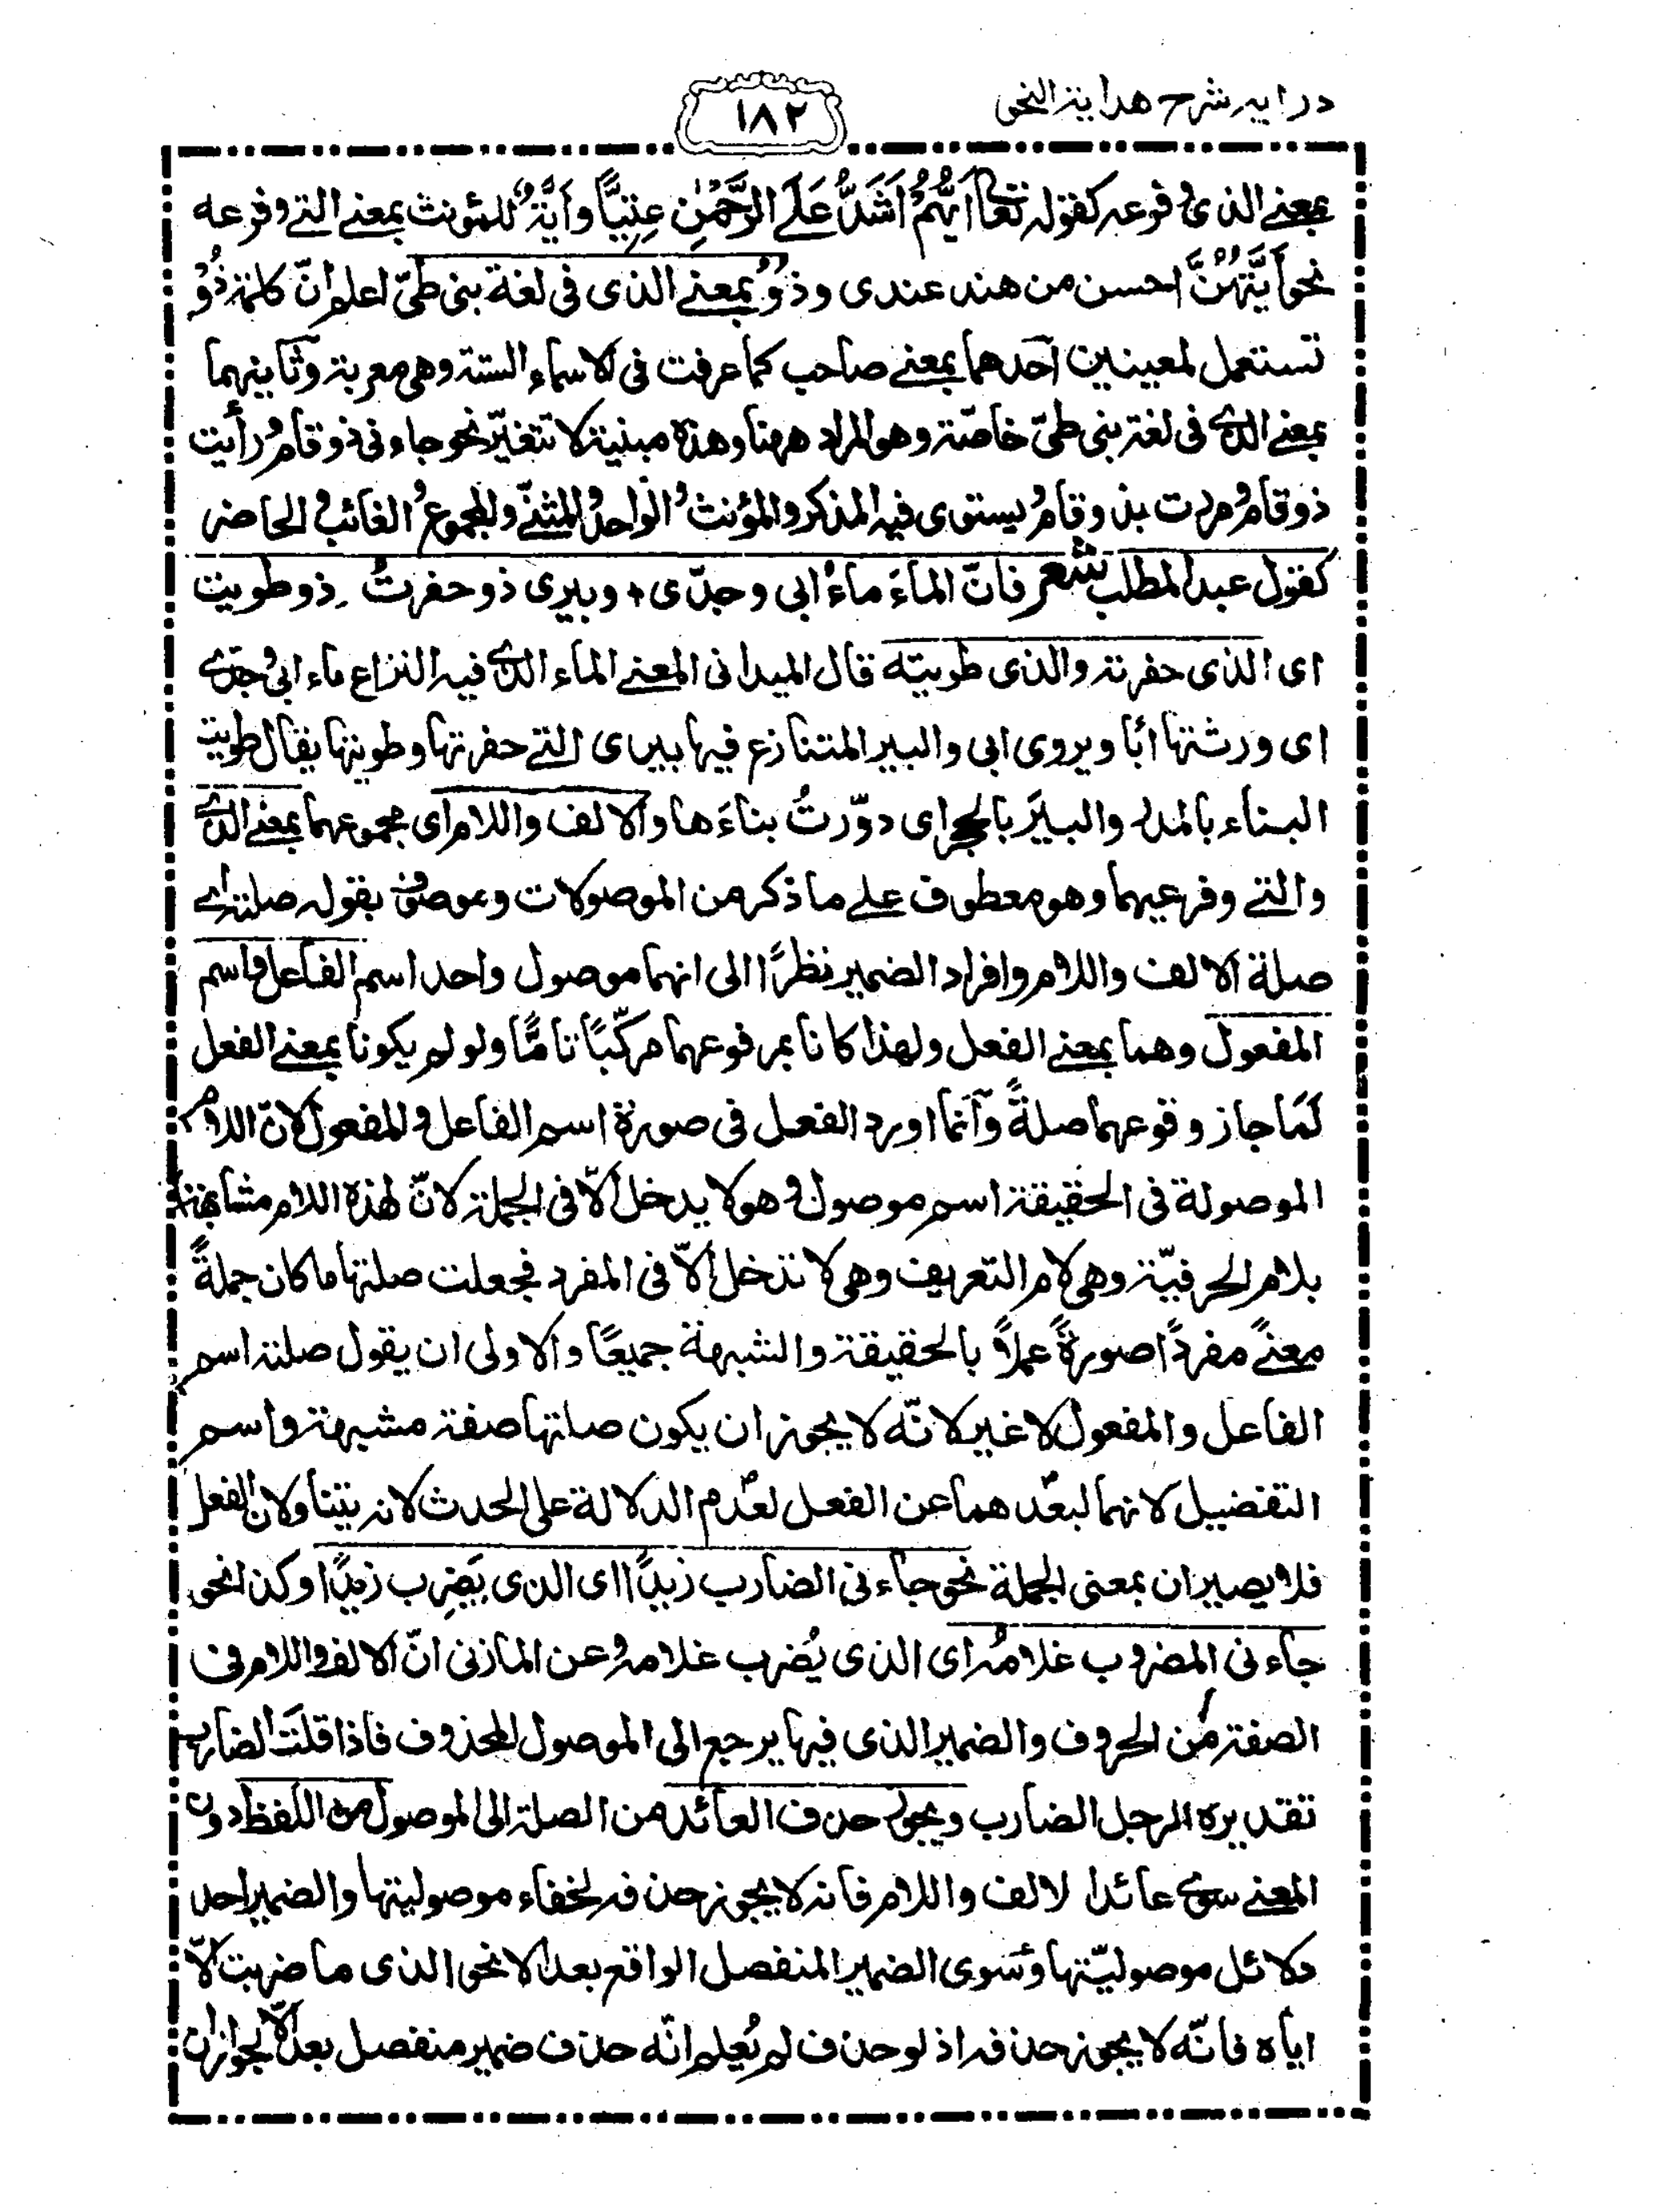 درايه شرح هداية النحو
١٨٢
بمعنى الذى وفروعه كقوله تعالى اَيُّهُمْ اَشَدُّ عَلَى الرَّحْمٰنِ عِتِيًّا وأَيَّةٌ للمؤنث بمعنى التى وفروعه
نحو أَيَّتُهُنَّ احسن من هند عندى وذُوْ بمعنى الذى فى لغة بنى طىّ اعلم انّ كلمة ذُوْ
تستعمل لمعينين احدهما بمعنى صاحب كما عرفت فى الاسماء الستة وهى معربة وثانيهما
بمعنى الذى فى لغة بنى طىّ خاصّة وهو المراد ههنا وهذه مبنية لا تتغيّر نحو جاءنى ذو قام ورأيت
ذو قام ومررت بذو قام ويستوى فيه المذكر والمؤنث والواحد والمثنّى والمجموع والغائب والحاضر
كقول عبد المطلب شعر فانّ الماءَ ماءُ ابى وجدّى ٭ وبيرى ذو حفرتُ وذو طويت
اى الذى حفرته والذى طويته قال الميدانى المعنى الماء الذى فيه النزاع ماء ابى وجدى
اى ورثتها ابًا ويروى ابى والبير المتنازع فيها بيرى التى حفرتها وطويتها يقال طويت
البناء بالمدر والبيرَ بالحجر اى دوّرتُ بناءَها والالف واللام اى مجموعهما بمعنى الذى
والتى وفرعيهما وهو معطوف على ما ذكر من الموصولات وموصوف بقوله صلته اى
صلة الالف واللام وافراد الضمير نظرًا الى انهما موصول واحد اسم الفاعل واسم
المفعول وهما بمعنى الفعل ولهذا كانا بمرفوعهما مركّبًا تامًّا ولو لم يكونا بمعنى الفعل
لَما جاز وقوعهما صلةً وانما اورد الفعل فى صورة اسم الفاعل والمفعول لانّ اللام
الموصولة فى الحقيقة اسم موصول وهو لا يدخل الّا فى الجملة لانّ لهذه اللام مشابهة
بلام الحرفيّة وهى لام التعريف وهى لا تدخل الّا فى المفرد فجعلت صلتها ما كان جملةً
معنىً مفردًا صورةً عملًا بالحقيقة والشبهة جميعًا والاولى ان يقول صلته اسم
الفاعل والمفعول لا غير لانّه لا يجوز ان يكون صلتها صفة مشبهة واسم
التفضيل لانهما لبعدهما عن الفعل لعدم الدلالة على الحدث لانه يتناولان الفعل
فلا يصيران بمعنى الجملة نحو جاءنى الضارب زيدًا اى الذى يَضرِب زيدًا وكذا نحو
جاءنى المضروب غلامُه اى الذى يُضرب غلامه وعن المازنى انّ الالف واللام فى
الصفة من الحروف والضمير الذى فيها يرجع الى الموصول المحذوف فاذا قلتَ الضارب
تقديره الرجل الضارب ويجوز حذف العائد من الصلة الى الموصول من اللفظ دون
المعنى سوى عائد الالف واللام فانه لا يجوز حذفه لخفاء موصوليتها والضمير احد
دلائل موصوليّتها وسوى الضمير المنفصل الواقع بعد الا نحو الذى ما ضربت الّا
اياه فانّه لا يجوز حذفه اذ لو حذف لم يُعلم انّه حذف ضمير منفصل بعد الّا لجواز ان